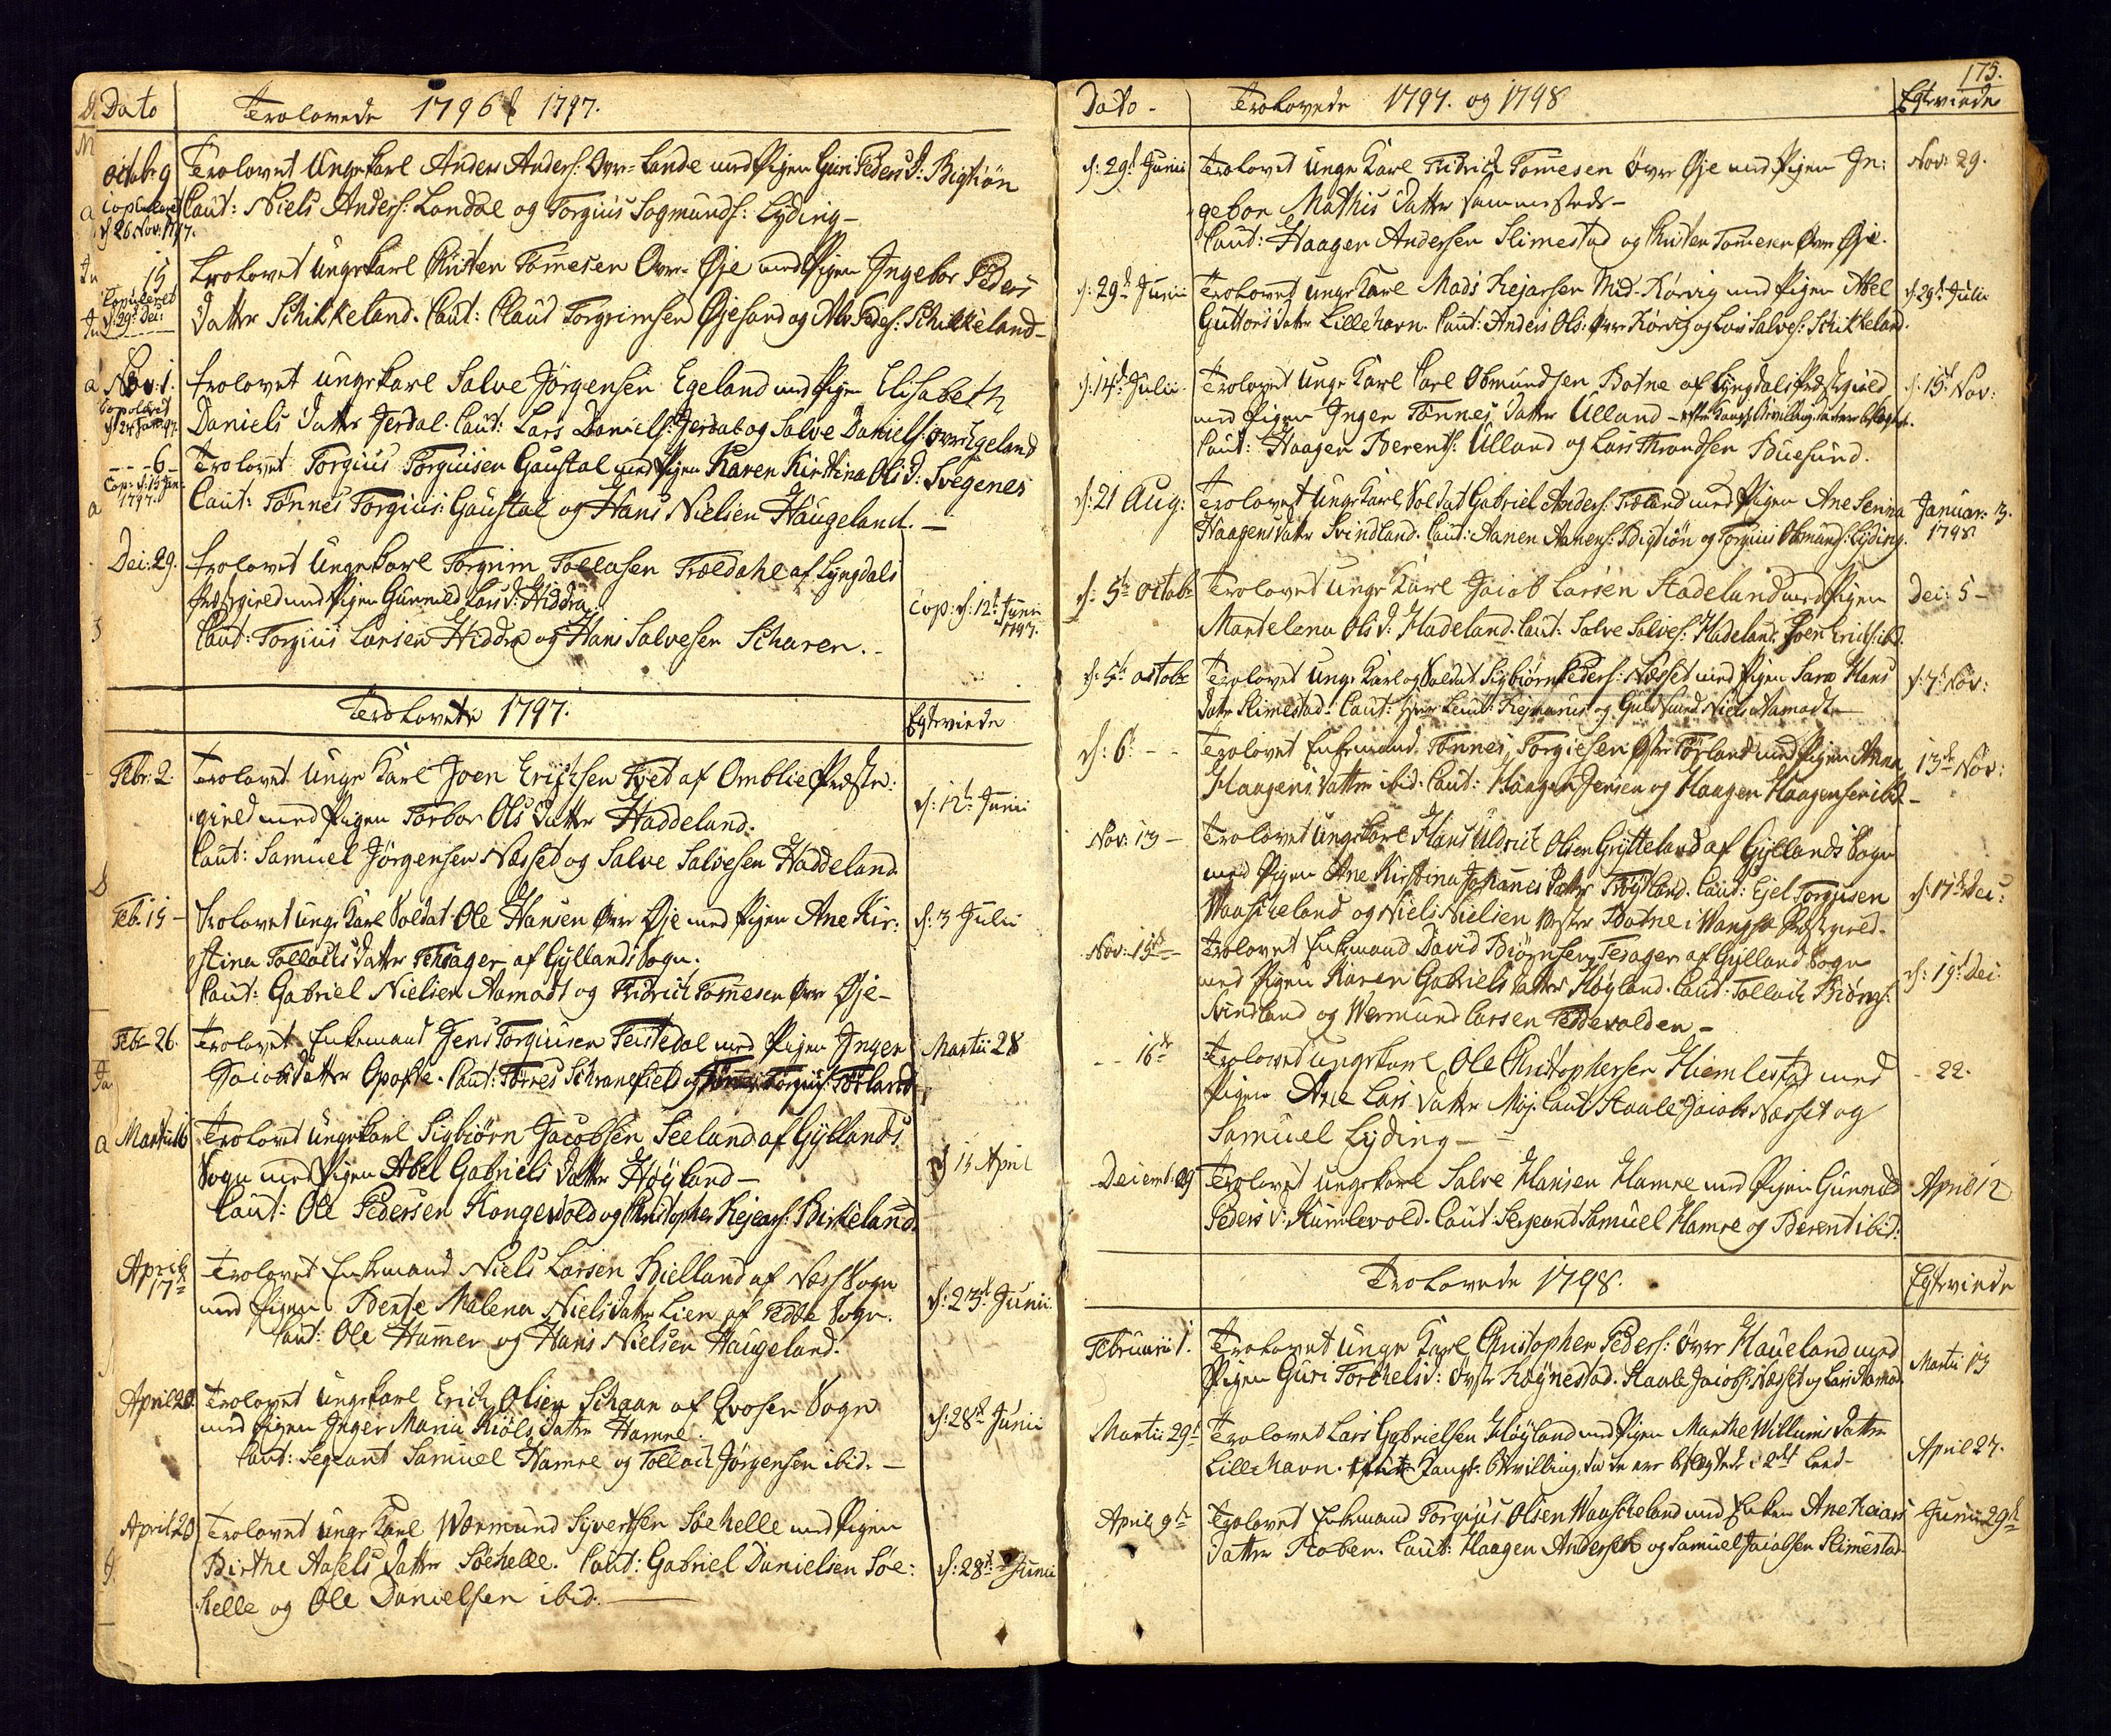 Dato
Trolovede 1796 & 1797.
octobr 9
Copuleret
d 26 Nov: 1797.
Trolovet Ungekarl Anders Anders: Ovr= Lande med Pigen Guri Peders D: Bigtiøn
Caut: Niels Anders: Londal og Torgius Sogmunds: Lyding –
15
Copuleret
d: 29d Dec:
Trolovet Ungekarl Christen Tommesen Ovr= Øje med Pigen Ingebor Peders
datter Schikkeland. Caut: Claud Torgrimsen Øjesand og Alv Peders: Schikkeland –
Nov: 1.
Copuleret
d 24 Janr 97.
trolovet ungekarl Salve Jørgensen Egeland med Pigen Elisabeth
Daniels datter Jerdal. Caut: Lars Daniels: Jerdal og Salve Daniels: øvre Egeland
- - - 6 –
Cop: d: 15 Jan:
1797.
Trolovet Torgius Torgiusen Gaustal med Pigen Karen Kirstina Ols D: Svegenes
Caut: Tønnes Torgius: Gaustal og Hans Nielsen Haugeland. –
Dec: 29.
trolovet Ungekarl Torgrim Tollasen Trældahl af Lyngdals
Præstegield med Pigen Gunnild Lars D: Hiddra
Caut: Torgius Larsen Hiddra og Hans Salvesen Scharen. –
Cop: d: 12t Junii
1797.
Trolovede 1797.
Egteviede
Febr: 2.
Trolovet Unge Karl Joen Erichsen Tvet af Omblie Præste:
gield med Pigen Torbor Ols Datter Haddeland.
Caut: Samuel Jørgensen Næsset og Salve Salvesen Haddeland.
d: 12t Junii
Feb: 15 –
Trolovet unge Karl Soldat Ole Hansen Ovr Øje med Pigen Ane Kir:
stina Tollachs datter Thrager af Gyllands Sogn.
Caut: Gabriel Nielsen Aamodt og Fridrich Tommesen Ovr Øje –
d: 3 Julii
Febr 26.
Trolovet Enkemand Jens Torgiusen Feistedal med Pigen Inger
Jacobsdatter Opofte. Caut: Tørres Schranefield og Tønnes Torgius: Tørland
Martii 28
Martii 16
Trolovet Ungekarl Sigbiørn Jacobsen Seeland af Gyllands
Sogn med Pigen Abel Gabriels datter Høyland –
Caut: Ole Pedersen Kongevold og Christopher Rejears: Birkeland.
d 15 April
April
17de
Trolovet Enkemand Niels Larsen Bielland af Næss Sogn
med Pigen Bente Malena Nielsdatter Lien af Fedde Sogn.
Caut: Ole Hammer og Hans Nielsen Haugeland.
d: 23d Junii
April 20.
Trolovet Ungekarl Erich Olsen Schaan af Qvosen Sogn
med Pigen Inger Maria Kiøls datter Hamre.
Caut: Segeant Samuel Hamre og Tollach Jørgensen ibid. –
d: 28d Junii
April 20
Trolovet unge Karl Wormund Sivertsen Søehelle med Pigen
Birthe Axels datter Søehelle. Caut: Gabriel Danielsen Søe:
helle og Ole Danielsen ibid. –
d: 28d Junii
175.
Dato –
Trolovede 1797. og 1798
Egteviede
d: 29d Junii
Trolovet Unge Karl Fridrich Tommesen Øvre Øje med Pigen In:
gebor Mathis datter sammesteds –
Caut: Haagen Andersen Slimestad og Christen Tommesen Ovr Øje.
Nov: 29.
d: 29d Junii
Trolovet ungekarl Mads Rejarsen Mid-Korvig med Pigen Abel
Guttors datter Lillehavn. Caut: Anders Ols: Ovr Korvig og Lars Salves: Schikkeland.
d: 29d Julii
d: 14d Julii
Trolovet Unge Karl Carl Obmundsen Botne af Lyngdals Præstegield
med Pigen Inger Tønnes datter Ulland –
Caut: Haagen Berents: Ulland og Lars Throndsen Buesund.
d: 15d Nov:
d: 21 Aug:
Trolovet Ungekarl Soldat Gabriel Anders: Froland med Pigen Ane Serina
Haagens datter Svindland. Caut: Aanen Aanens: Bigtiøn og Torgius Obmunds: Lyding.
Januar: 3.
1798
d: 5te octobr
Trolovet Unge Karl Jacob Larsen Stadeland med Pigen
Mandelena Ols D: Hadeland. Caut: Salve Salves: Hadeland, Joen Erichs: ibid.
Dec: 5 –
d: 5te octobr
Trolovet Unge Karl og Soldat Sigbiørn Peders: Næsset med Pigen Sara Hans
datter Slimestad. Caut: Herr Leut: Rejmarus og Guldsmed Niels Aamodt –
d: 7de Nov:
d: 6te – –
Trolovet Enkemand Tønnes Torgiesen Østre Tørland med Pigen Anna
Haagens datter ibid. Caut: Haagen Jensen og Haagen Haagensen ibid –
13de Nov:
Nov: 13 –
Trolovet Ungekarl Hans Uldrich Olsen Grytteland af Gyllands Sogn
med Pigen Ane Kirstina Johannes Datter Frøysland. Caut: Ejel Torgiusen
Waascheland og Niels Nielsen Vester Botne i Wangsø Præstegield.
d: 17de Dec:
Nov: 15de –
Trolovet Enkemand David Biørnsen Tesager af Gylland Sogn
med Pigen Karen Gabriels datter Høyland. Caut: Tollach Biørns:
Svindland og Wermund Larsen Feddevolden –
d: 19d Dec:
– – 16de
Trolovet ungekarl Ole Christophersen Hiemlestad med
Pigen Ane Lars datter Møj. Caut: Staale Jacobs: Næsset og
Samuel Lyding –
– 22.
Decemb: 29
Trolovet ungekarl Salve Hansen Hamre med Pigen Gunnild
Peders D: Kumlevold. Caut: Sergeant Samuel Hamre og Berent ibid:
April 12
Trolovede 1798.
Egteviede
Februarii 1.
Trolovet Unge Karl Christopher Peders: Øvre Haueland med
Pigen Guri Torchels D: øvre Røynestad. Staale Jacobs: Næsset og Lars Aamod.
Martii 13
Martii 29d
Trolovet Lars Gabrielsen Høyland med Pigen Marthe Willums datter
Lillehavn. Kongl: Bevilling, da de ere beslegtede i 2det Leed –
April 27.
April 9de
Trolovet Enkemand Torgius Olsen Waascheland med Enken Ane Reiars
datter Roben. Caut: Haagen Anderses og Samuel Jacobsen Slimestad
Junii 29de